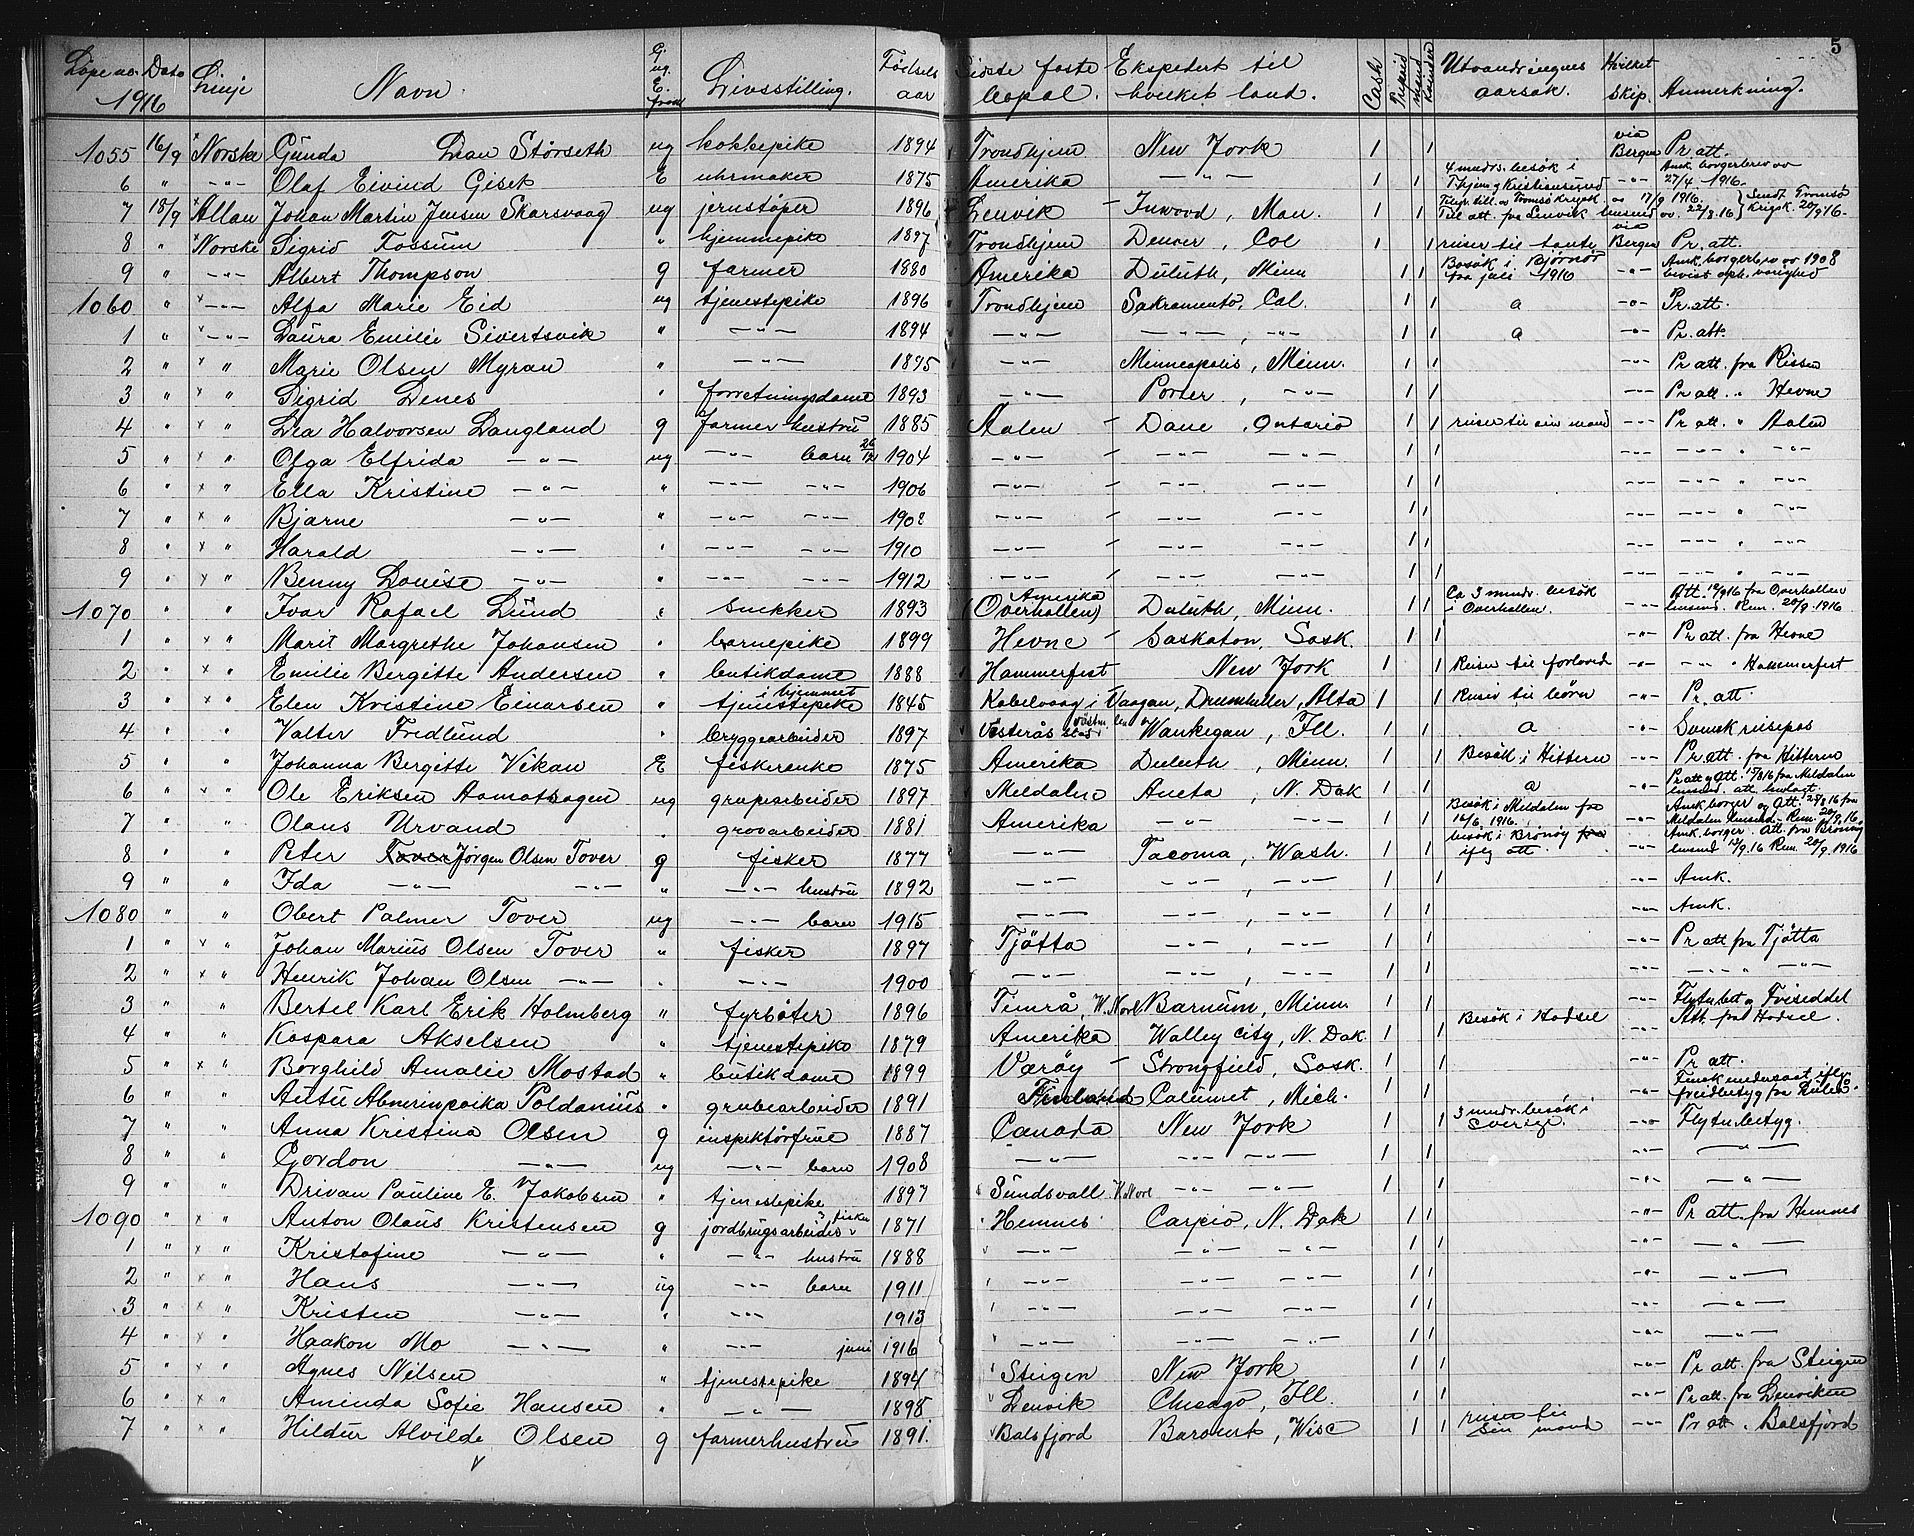 5
Løpe no. Dato Linje Navn. G. ug. E. frask Livsstilling. Fødsels aar Sidste faste bopæl. Ekspedert til hvilket land. Cash Prepaid Mænd Kvinder Utvandringens aarsak. Hvilket Skip. Anmerkning.
1916
1055 16/9 Norske Gunda Lian Størseth ug kokkepike 1894 Trondhjem New York 1 1 via Bergen Pr. att.
6 " -"- Olaf Eivind Giset E uhrmaker 1875 Amerika -"- 1 1 4 mndrs. besøk i Thjem og Kristiansund -"- Amk. borgerbrev av 27/4 - 1916.
7 18/9 Allan Johan Martin Jensen Skarsvaag ug jernstøper 1896 Lenvik Inwood, Man. 1 1 Til att. fra Lenvik lensmd av 22/8.16 Sendt Tromsø Krigsk. 20/9 16.
8 " Norske Sigrid Fossum " hjemmepike 1897 Trondhjem Denver, Col 1 1 reiser til tante via Bergen Pr. att.
9 " -"- Albert Thompson g farmer 1880 Amerika Duluth, Minn 1 1 Besøk i Bjørnør fra juli 1916 -"- Amk. borgerbrev av 1908
1060 " -"- Alfa Marie Eid ug tjenestepike 1896 Trondhjem Sakramento, Cal. 1 1 a -"- Pr. att.
1 " -"- Laura Emilie Sivertsvik " -"- 1894 -"- -"-, -"- 1 1 a -"- Pr. att.
2 " " Marie Olsen Myran " -"- 1895 -"- Minneapolis, Minn. 1 1 -"- Pr att. fra Rissen
3 " " Sigrid Lenes " forretningsdame 1893 -"- Porter, -"- 1 1 -"- Pr att. " Hevne
4 " " Lea Halvorsen Langland g farmer hustru 1885 Aalen Dane, Ontario 1 1 reiser til sin mand -"- Pr att. " Aalen
5 " " Olga Elfrida -"- ug -"- barn 26/12 1904 -"- -"- -"- 1 1 -"- -"- " -"-
6 " " Ella Kristine -"- " -"- -"- 1906 -"- -"- -"- 1 1 -"- -"- " -"-
7 " " Bjarne -"- " -"- -"- 1908 -"- -"- -"- 1 1 -"- -"- " -"-
8 " " Harald -"- " -"- -"- 1910 -"- -"- -"- 1 1 -"- -"- " -"-
9 " " Benny Louise -"- " -"- -"- 1912 -"- -"- -"- 1 1 -"- -"- " -"-
1070 " " Ivar Rafael Lund " Snekker 1893 Amerika (Overhallen) Duluth, Minn. 1 1 Ca 3 mndr. besøk i Overhallen. -"- Att. 14/9 16 fra Overhallen lensmd. Rem. 20/9. 1916
1 " " Marit Margrethe Johansen " barnepike 1899 Hevne Saskaton, Sask. 1 1 -"- Pr att. fra Hevne
2 " " Emilie Bergitte Andersen " butikdame 1888 Hammerfest New York 1 1 Reiser til forlovede -"- -"- " Hammerfest
3 " " Elen Kristine Einarsen " tjenestepike i hjemmet 1845 Kabelvaag i Vaagan, Drumheller, Alta 1 1 Reiser til børn -"- Pr. att.
4 " " Valter Fredlund " bryggearbeider 1897 Vesterås Waukegan, Ill. 1 1 a -"- Svensk reisepas
5 " " Johanna Bergitte Vikan E fiskerenke 1875 Amerika Duluth, Minn. 1 1 Besøk i Hitteren -"- Pr. att. fra Hitteren
6 " " Ole Eriksen Aamotshagen ug grubearbeider 1897 Meldalen Aneta, N. Dak 1 1 a -"- Pr att og Att. 17/8 16 fra Meldalen lensmd. att. henlagt.
7 " " Olaus Urvand " grovarbeider 1881 Amerika -"- -"- 1 1 Besøk i Meldalen fra 16/6 1916. -"- Amk borger og att. 24/8 16 fra Meldalen lensmd - Rem. 20/9 16.
8 " " Peter Jørgen Olsen Tover g fisker 1877 -"- Tacoma, Wash. 1 1 besøk i Brønøy iflg att. -"- Amk. borger. Att. fra Brønøy lensmd 13/9. 16 Rem. 20/9. 1916
9 " " Ida -"- -"- " -"- hustru 1892 -"- -"-, -"- 1 1 -"- Amk.
1080 " " Obert Palmer Tover ug -"- barn 1915 -"- -"-, -"- 1 1 -"- Amk.
1 " " Johan Marius Olsen Tover " fisker 1897 Tjøtta -"-, -"- 1 1 -"- Pr att fra Tjøtta
2 " " Henrik Johan Olsen -"- " -"- 1900 -"- -"-, -"- 1 1 -"- -"- " -"-
3 " " Bertel Karl Erik Holmberg " fyrbøter 1896 Timrå, W. Norl Barnum, Minn 1 1 -"- Flyttebett og Friseddel
4 " " Kaspara Akselsen " tjenestepike 1879 Amerika Walley City, N. Dak. 1 1 Besøk i Hadsel -"- Att. fra Hadsel.
5 " " Borghild Amalie Mostad " butikdame 1899 Værøy Strongfield, Sask. 1 1 -"- Pr att.
6 " " Antti Poldanius " grubearbeider 1891 Finland Calumet, Mich. 1 1 -"- Finsk undersaat iflg
7 " " Anna Kristina Olsen g inspektørfrue 1887 Canada New York 1 1 3 mndr. besøk i Sverige. -"- Flyttebetyg.
8 " " Gordon -"- ug -"- barn 1908 -"- -"- -"- 1 1 -"- -"-
9 " " Drivan Pauline E. Jakobsen " tjenestepike 1897 Sundsvall W Norl -"- -"- 1 1 -"- -"-
1090 " " Anton Olaus Kristensen g jordbrugsarbeider fisker 1871 Hemnes Carpio, N. Dak 1 1 -"- Pr att. fra Hemnes
1 " " Kristofine -"- " -"- hustru 1888 -"- -"- -"- 1 1 -"- -"-
2 " " Hans -"- ug -"- barn 1911 -"- -"- -"- 1 1 -"- -"-
3 " " Kristen -"- " -"- 1913 -"- -"- -"- 1 1 -"- -"-
4 " " Haakon Mo -"- " -"- juni 1916 -"- -"- -"- 1 1 -"- -"-
5 " " Agnes Nilsen " tjenestepike 1894 Steigen New York 1 1 -"- Pr att. fra Steigen
6 " " Aminda Sofie Hansen " -"- 1898 Lenvik Chicago, Ill. 1 1 -"- Pr att. fra Lenviken
7 " " Hildur Alvilde Olsen g farmerhustru 1891. Balsfjord Baronet, Wisc 1 1 reiser til sin mand -"- Pr att. " Balsfjord